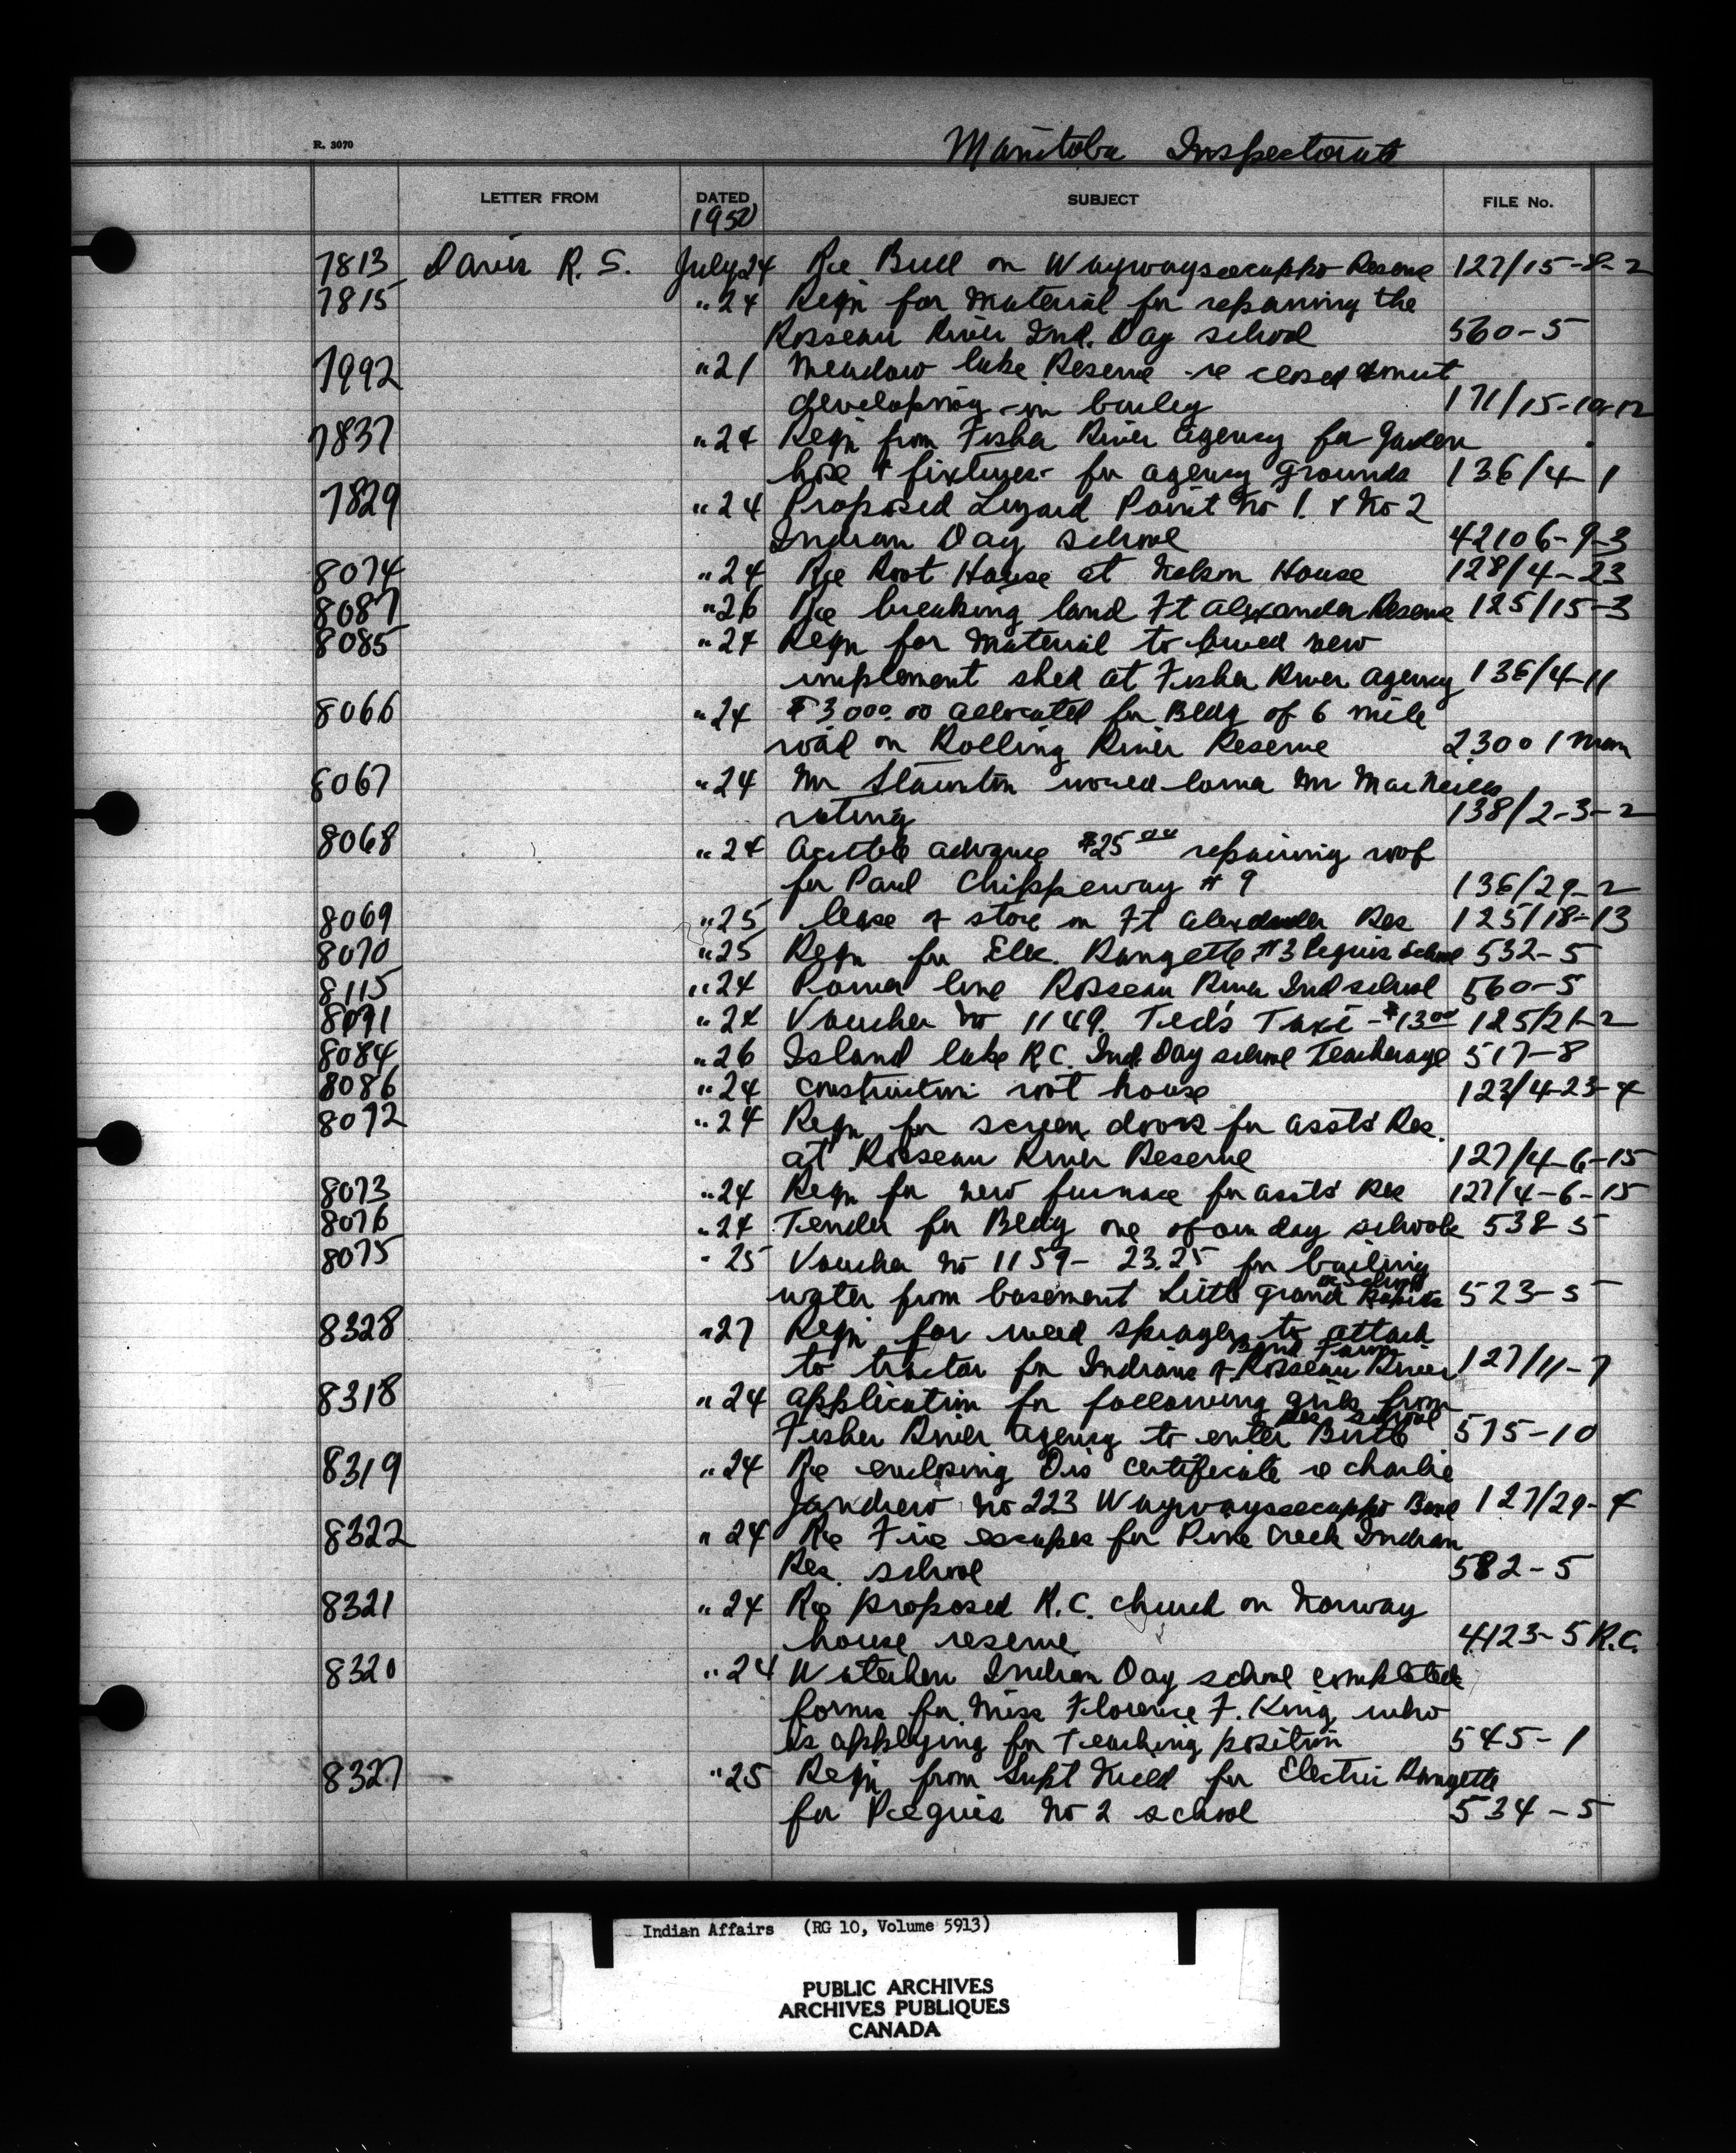 R. 3070
Manitoba Inspectorate
LETTER FROM DATED SUBJECT FILE No.
1950
7813 Davis R. S. July 24 Re Bull on Waywayseecappo Reserve 127/15-8-2
7815 " 24 Reqn for material for repairing the
Rosseau River Ind. Day school 560-5
7992 " 21 Meadow lake Reserve - re closed smut
developing - in barley 171/15-10-12
7837 " 24 Reqn from Fisher River agency for garden
hose & fixtures - for agency grounds 136/4-1
7829 " 24 Proposed Lizard Point No 1. & No 2
Indian Day school 42106-9-3
8074 " 24 Re Root House at Nelson House 128/4-23
8087 " 26 Re breaking land Ft Alexander Reserve 125/15-3
8085 " 24 Reqn for material to build new
implement shed at Fisher River agency 136/4-11
8066 " 24 $3000.00 allocated for Bldg of 6 mile
road on Rolling River Reserve 23001 Man
8067 " 24 Mr Staunton would lower Mr MacNeills
rating 138/2-3-2
8068 " 24 advance $25.00 repairing roof
for Paul Chippeway # 9 136/29-2
8069 " 25 lease of store on Ft Alexander Res 125/18-13
8070 " 25 Reqn for Elec. Rangette #3 Peguis School 532-5
8115 " 24 Power line Rosseau River Ind school 560-5
8071 " 24 Voucher No 1149. Ted's Taxi - $13.00 125/21-2
8084 " 26 Island lake R.C. Ind. Day school Teacherage 517-8
8086 " 24 construction root house 123/4-23-4
8072 " 24 Reqn for screen doors for assts' Res.
at Rosseau River Reserve 127/4-6-15
8073 " 24 Reqn for new furnace for assts' Res 127/4-6-15
8076 " 24 Tender for Bldg one of our day schools 538-5
8075 " 25 Voucher No 1159- 23.25 for bailing
water from basement Little Grand Rapids School 523-5
8328 " 27 Reqn for weed sprayer to attach
to tractor for Indians of Rosseau River Band Farm 127/11-7
8318 " 24 application for following girls from
Fisher River agency to enter Birtle Res school 575-10
8319 " 24 Re enclosing Drs certificate re Charlie
Jandrew No 223 Waywayseecappo Band 127/29-4
8322 " 24 Re Fire escapes for Pine Creek Indian
Res. school 582-5
8321 " 24 Re proposed R.C. church on Norway
house reserve 4123-5 R.C.
8320 " 24 Waterhen Indian Day school completed
forms for Miss Florence F. King who
is applying for Teaching position 545-1
8327 " 25 Reqn from Supt Neeld for Electric Rangette
for Peguis No 2 school 534-5
Indian Affairs (RG 10, Volume 5913)
PUBLIC ARCHIVES
ARCHIVES PUBLIQUES
CANADA